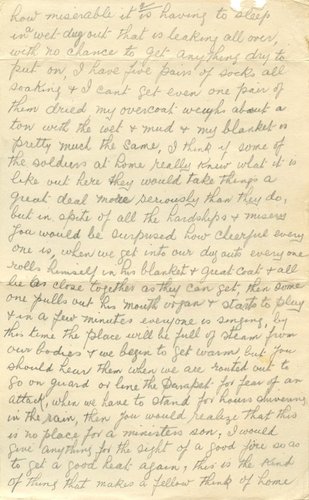 how miserable it is having to sleep
in wet dug out that is leaking all over,
with no chance to get anything dry to
put on, I have five pairs of socks all
soaking & I cant get even one pair of
them dried my overcoat weighs about a
ton with the wet & mud & my blanket is
pretty much the same, I think if some of
the soldiers at home really knew what it is
like out here they would take things a
great deal more seriously than they do,
but in spite of all the hardships & misery
you would be surprised how cheerful every
one is when we get into our dug outs everyone
rolls himself in his blanket & great coat & all
lie as close together as they can get, then some
one pulls out his mouth organ & starts to play
& in a few minutes everyone is singing, by
this time the place will be full of steam from
our bodies & we begin to get warm but you
should hear them when we are routed out to
go on guard or line the Parapet for fear of an
attack, when we have to stand for hours shivering
in the rain, then you would realize that this
is no place for a ministers son, I would
give anything for the sight of a good fire so as
to get a good heat again, this is the kind
of thing that makes a fellow think of home